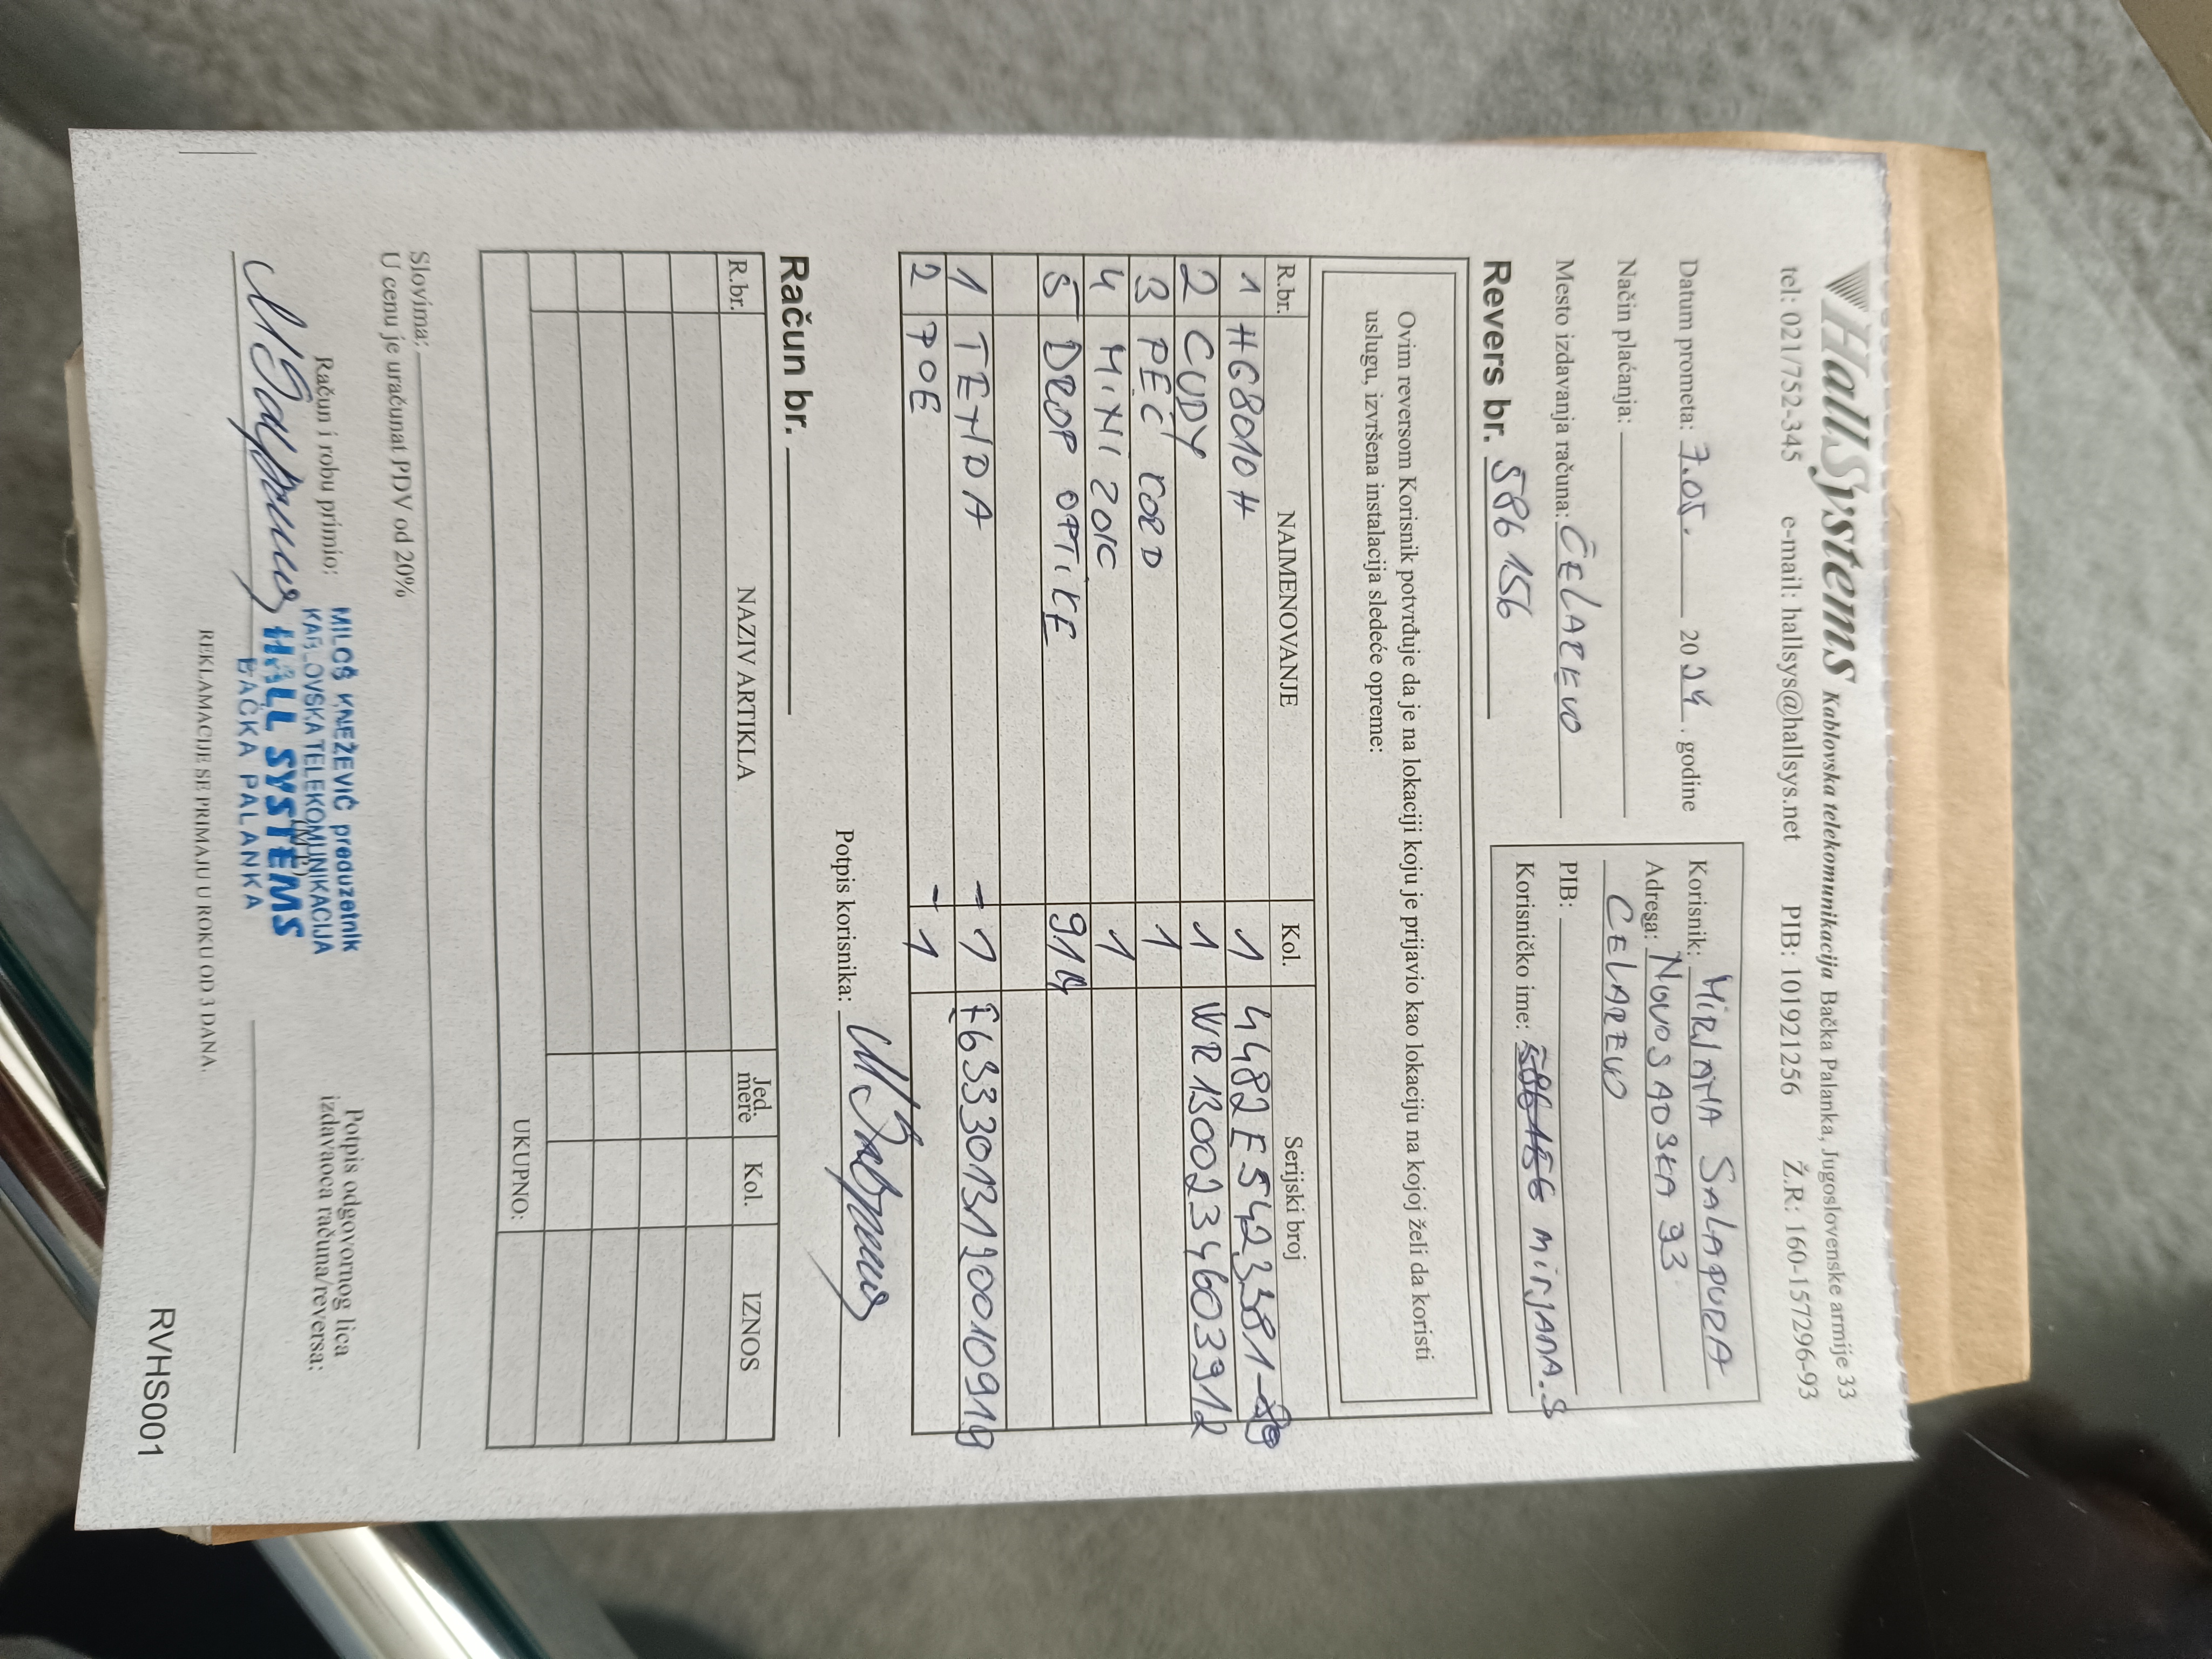 HallSystems Kablovska telekomunikacija Bačka Palanka, Jugoslovenske armije 33
tel: 021/752-345 e-mail: hallsys@hallsys.net PIB: 101921256 Ž.R: 160-157296-93
Datum prometa: 7.05. 20 24 . godine
Način plaćanja:
Mesto izdavanja računa: ČELAREVO
Korisnik: MIRJANA SALAPURA
Adresa: NOVOSADSKA 93
ČELAREVO
PIB:
Korisničko ime: 586156 MIRJANA.S
Revers br. 586 156
Ovim reversom Korisnik potvrđuje da je na lokaciji koju je prijavio kao lokaciju na kojoj želi da koristi
uslugu, izvršena instalacija sledeće opreme:
R.br. NAIMENOVANJE Kol. Serijski broj
1 HG8010H 1 4482E5423381
2 CUDY 1 WR1300234603912
3 PEČ CORD 1
4 MINI ZOIC 1
5 DROP OPTIKE 91M
1 TENDA - 1 E6333013120010919
2 POE - 1
Potpis korisnika:
Račun br.
R.br. NAZIV ARTIKLA Jed. mere Kol. IZNOS
UKUPNO:
Slovima:
U cenu je uračunat PDV od 20%
Račun i robu primio:
Potpis odgovornog lica
izdavaoca računa/reversa:
MILOŠ KNEŽEVIĆ preduzetnik
KABLOVSKA TELEKOMUNIKACIJA
HALL SYSTEMS
BAČKA PALANKA
(M.P.)
REKLAMACIJE SE PRIMAJU U ROKU OD 3 DANA.
RVHS001